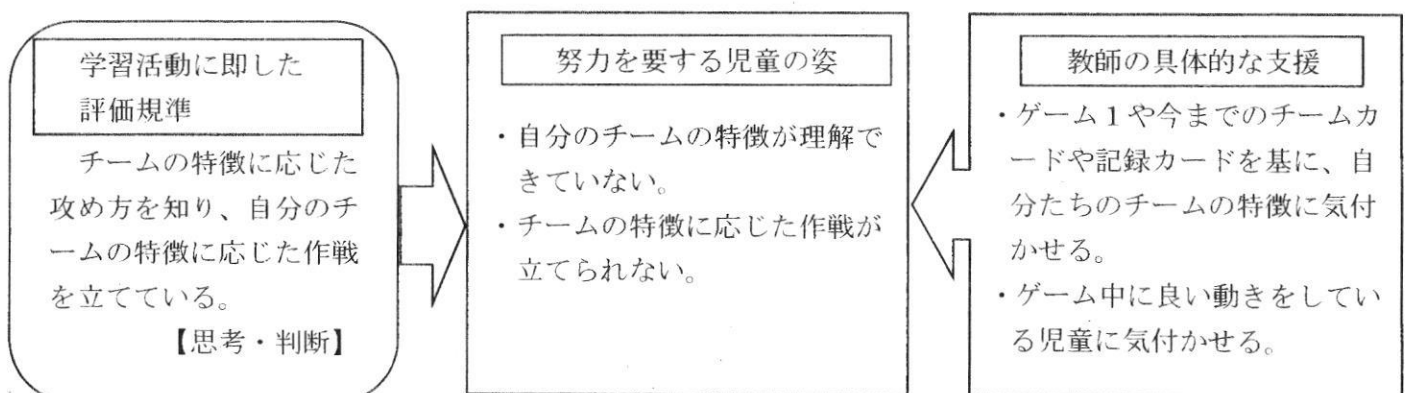 学習活動に即した
評価規準
チームの特徴に応じた
攻め方を知り、自分のチ
ームの特徴に応じた作戦
を立てている。
【思考・判断】
努力を要する児童の姿
・自分のチームの特徴が理解で
きていない。
・チームの特徴に応じた作戦が
立てられない。
教師の具体的な支援
・ゲーム1や今までのチームカ
ードや記録カードを基に、自
分たちのチームの特徴に気付
かせる。
・ゲーム中に良い動きをしてい
る児童に気付かせる。